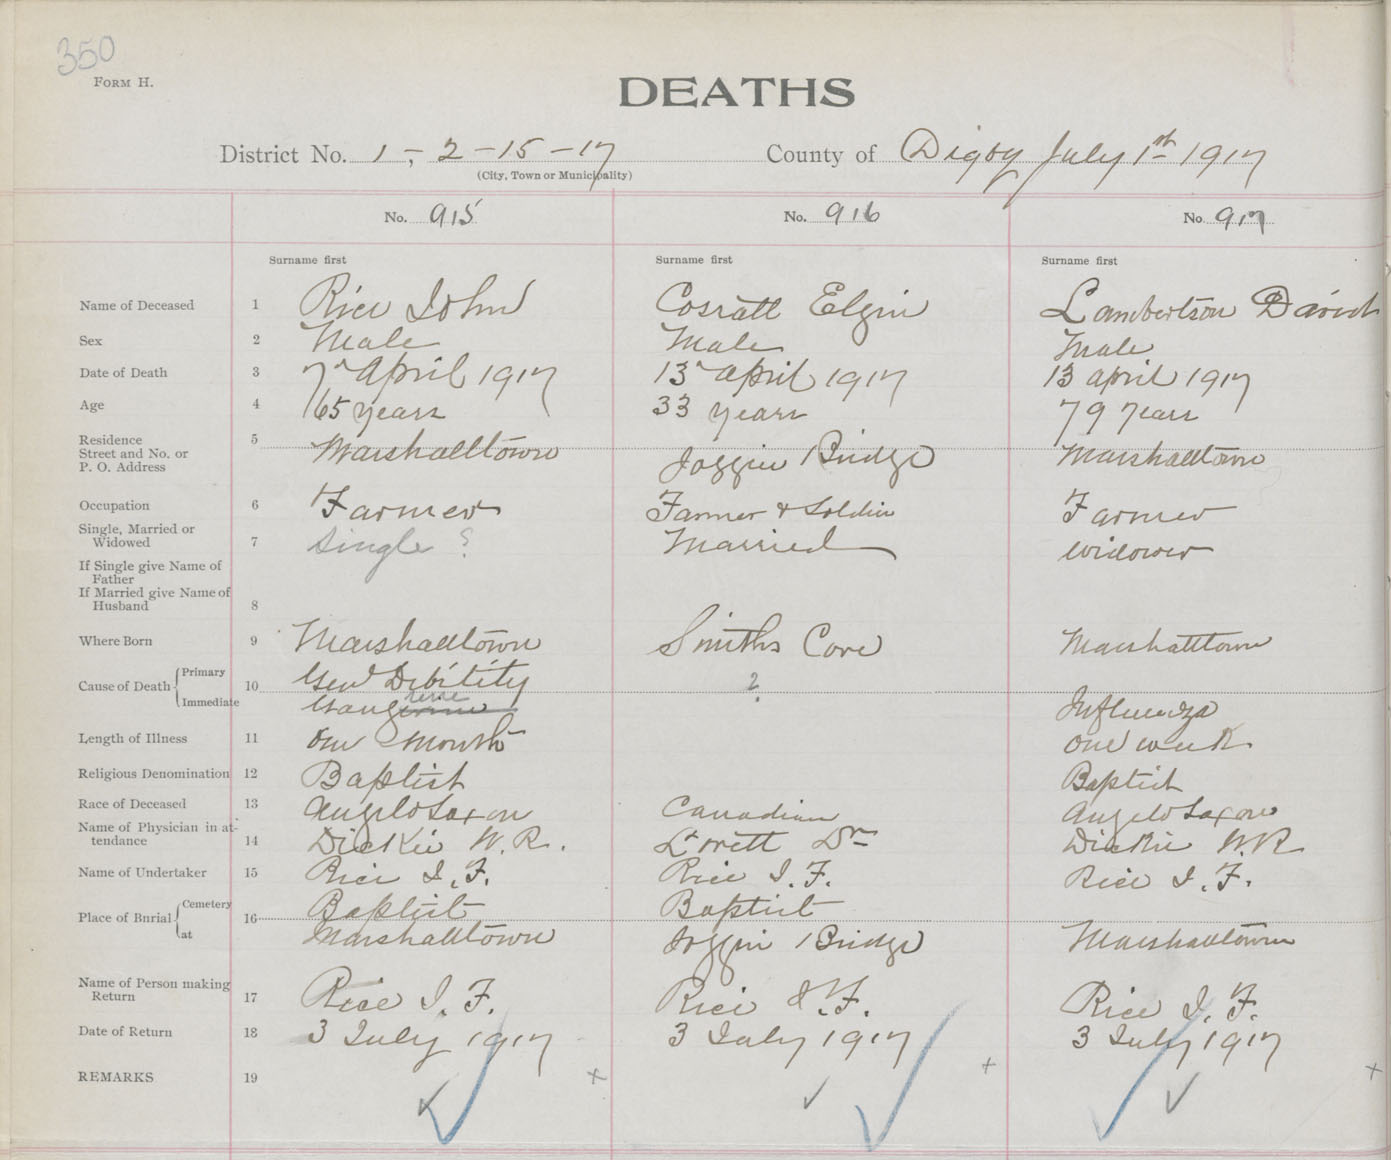 350
FORM H.
DEATHS
District No. 1, 2 - 15 - 17 County of Digby July 1st 1917
(City, Town or Municipality)
No. 915 No. 916 No. 917
Surname first Surname first Surname first
Name of Deceased 1 Rice John Cosratt Elgin Lambertson David
Sex 2 Male Male Male
Date of Death 3 7 April 1917 13 April 1917 13 April 1917
Age 4 65 years 33 years 79 years
Residence 5
Street and No. or Marshalltown Joggin Bridge Marshalltown
P. O. Address
Occupation 6 Farmer Farmer & Soldier Farmer
Single, Married or
Widowed 7 Single ? Married Widower
If Single give Name of
Father
If Married give Name of
Husband 8
Where Born 9 Marshalltown Smiths Cove Marshalltown
Cause of Death Primary 10 Genl Debility ?
Immediate Gangrene Influenza
Length of Illness 11 one month one week
Religious Denomination 12 Baptist Baptist
Race of Deceased 13 Angelo Saxon Canadian Angelo Saxon
Name of Physician in at-
tendance 14 Dickie W. R. Lovett Dr Dickie W. R.
Name of Undertaker 15 Rice I. F. Rice I. F. Rice I. F.
Place of Burial Cemetery 16 Baptist Baptist
at Marshalltown Joggin Bridge Marshalltown
Name of Person making
Return 17 Rice I. F. Rice I. F. Rice I. F.
Date of Return 18 3 July 1917 3 July 1917 3 July 1917
REMARKS 19